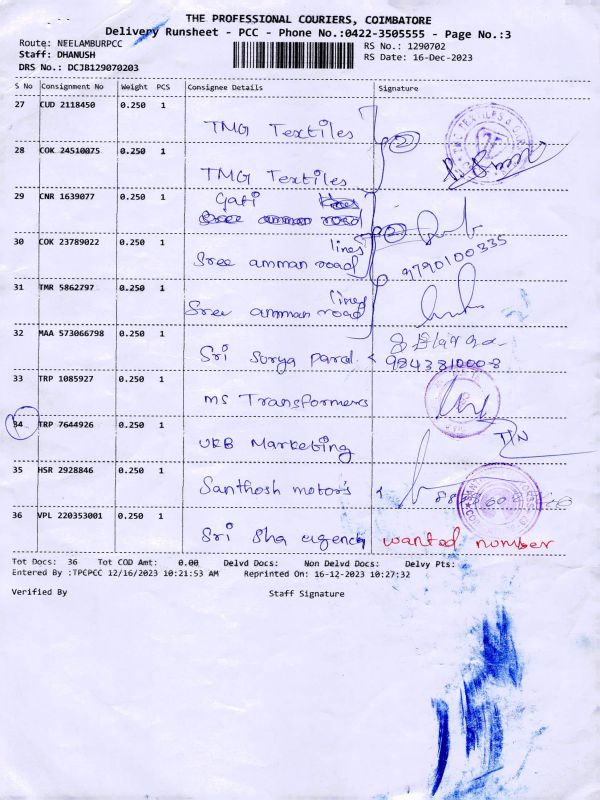 THE PROFESSIONAL COURIERS, COIMBATORE
Delivery Runsheet - PCC - Phone No.:0422-3505555 - Page No.:3
Route: NEELAMBURPCC RS No.: 1290702
Staff: DHANUSH RS Date: 16-Dec-2023
DRS No.: DCJB129070203
S No Consignment No Weight PCS Consignee Details Signature
27 CUD 2118450 0.250 1
TMG Textiles
2
28 COK 24510075 0.250 1
TMG Textiles
29 CNR 1639077 0.250 1 Gati
Sree amman road
2
30 COK 23789022 0.250 1 lines
Sree amman road 9790100335
31 TMR 5862797 0.250 1 lines
Sree amman road
32 MAA 573066798 0.250 1
Sri Surya Parcel 9843810008
33 TRP 1085927 0.250 1
MS Transformers
34 TRP 7644926 0.250 1
UKB Marketing
35 HSR 2928846 0.250 1
Santhosh motor's
36 VPL 220353001 0.250 1
Sri Sha agency wanted number
Tot Docs: 36 Tot COD Amt: 0.00 Delvd Docs: Non Delvd Docs: Delvy Pts:
Entered By :TPCPCC 12/16/2023 10:21:53 AM Reprinted On: 16-12-2023 10:27:32
Verified By Staff Signature